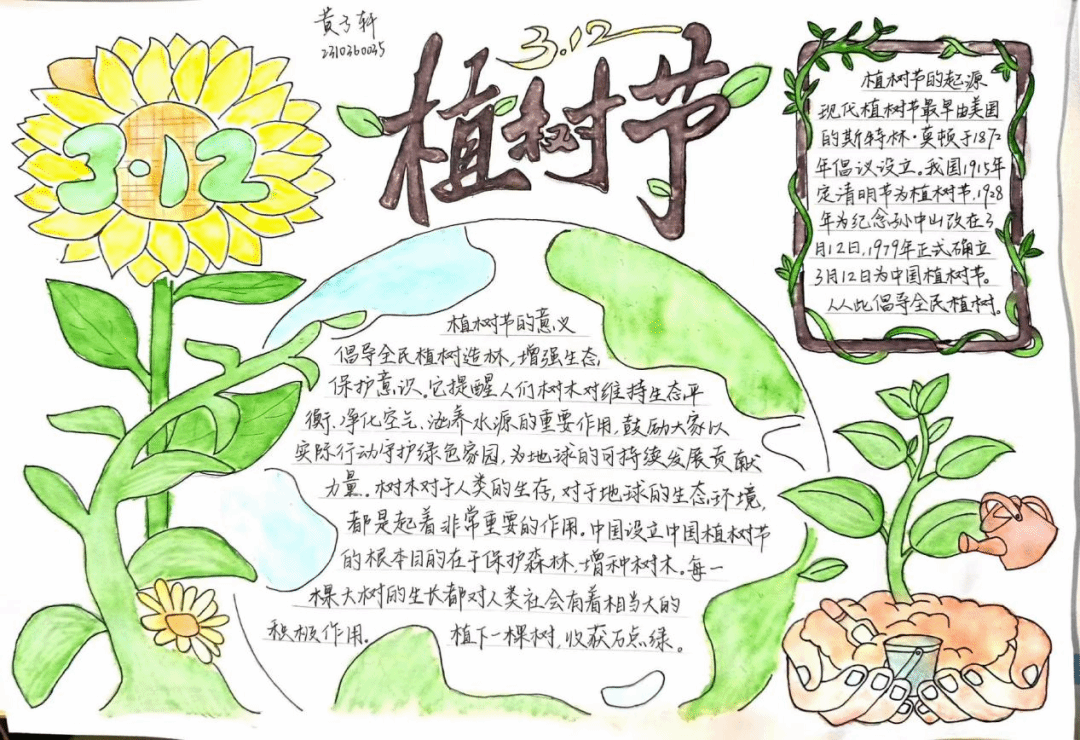 黄子轩
2310360035
3.12
植树节
3.12
植树节的起源
现代植树节最早由美国
的斯特林·莫顿于1872
年倡议设立。我国1915年
定清明节为植树节,1928
年为纪念孙中山改在3
月12日,1979年正式确立
3月12日为中国植树节。
从此倡导全民植树。
植树节的意义
倡导全民植树造林,增强生态
保护意识。它提醒人们树木对维持生态平
衡、净化空气、涵养水源的重要作用,鼓励大家以
实际行动守护绿色家园,为地球的可持续发展贡献
力量。树木对于人类的生存,对于地球的生态环境,
都是起着非常重要的作用。中国设立中国植树节
的根本目的在于保护森林、增种树木。每一
棵大树的生长都对人类社会有着相当大的
积极作用。 植下一棵树,收获万点绿。